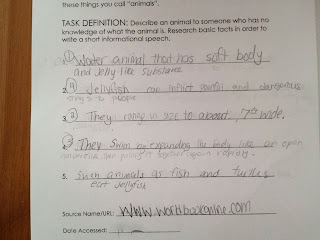 these things you call "animals".
TASK DEFINITION: Describe an animal to someone who has no
knowledge of what the animal is. Research basic facts in order to
write a short informational speech.
1 Water animal that has soft body
and Jelly-like substance
2. 4 Jellyfish can inflict painful and dangerous
stings to people
3. 2 They range in size to about 7 ft wide.
3 They Swim by expanding the body like an open
umbrella and pulling it together again rapidly.
5. Such animals as fish and turtles
eat Jellyfish
Source Name/URL: www.worldbookonline.com
Date Accessed: